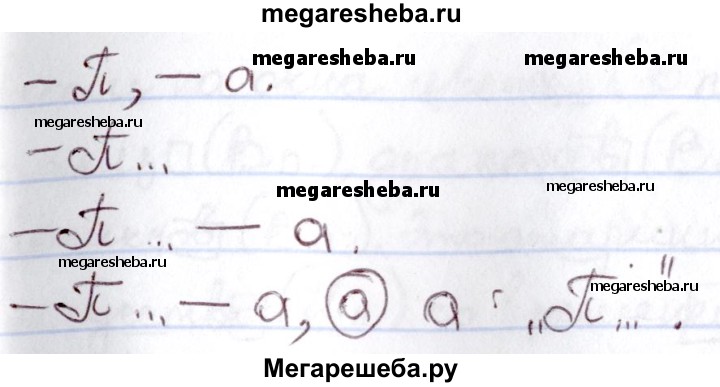 megaresheba.ru
megaresheba.ru megaresheba.ru
– П, – а.
megaresheba.ru
– П...
megaresheba.ru megaresheba.ru
– П... – а.
megaresheba.ru megaresheba.ru
– П... – а, а а : „П...".
Мегарешеба.ру